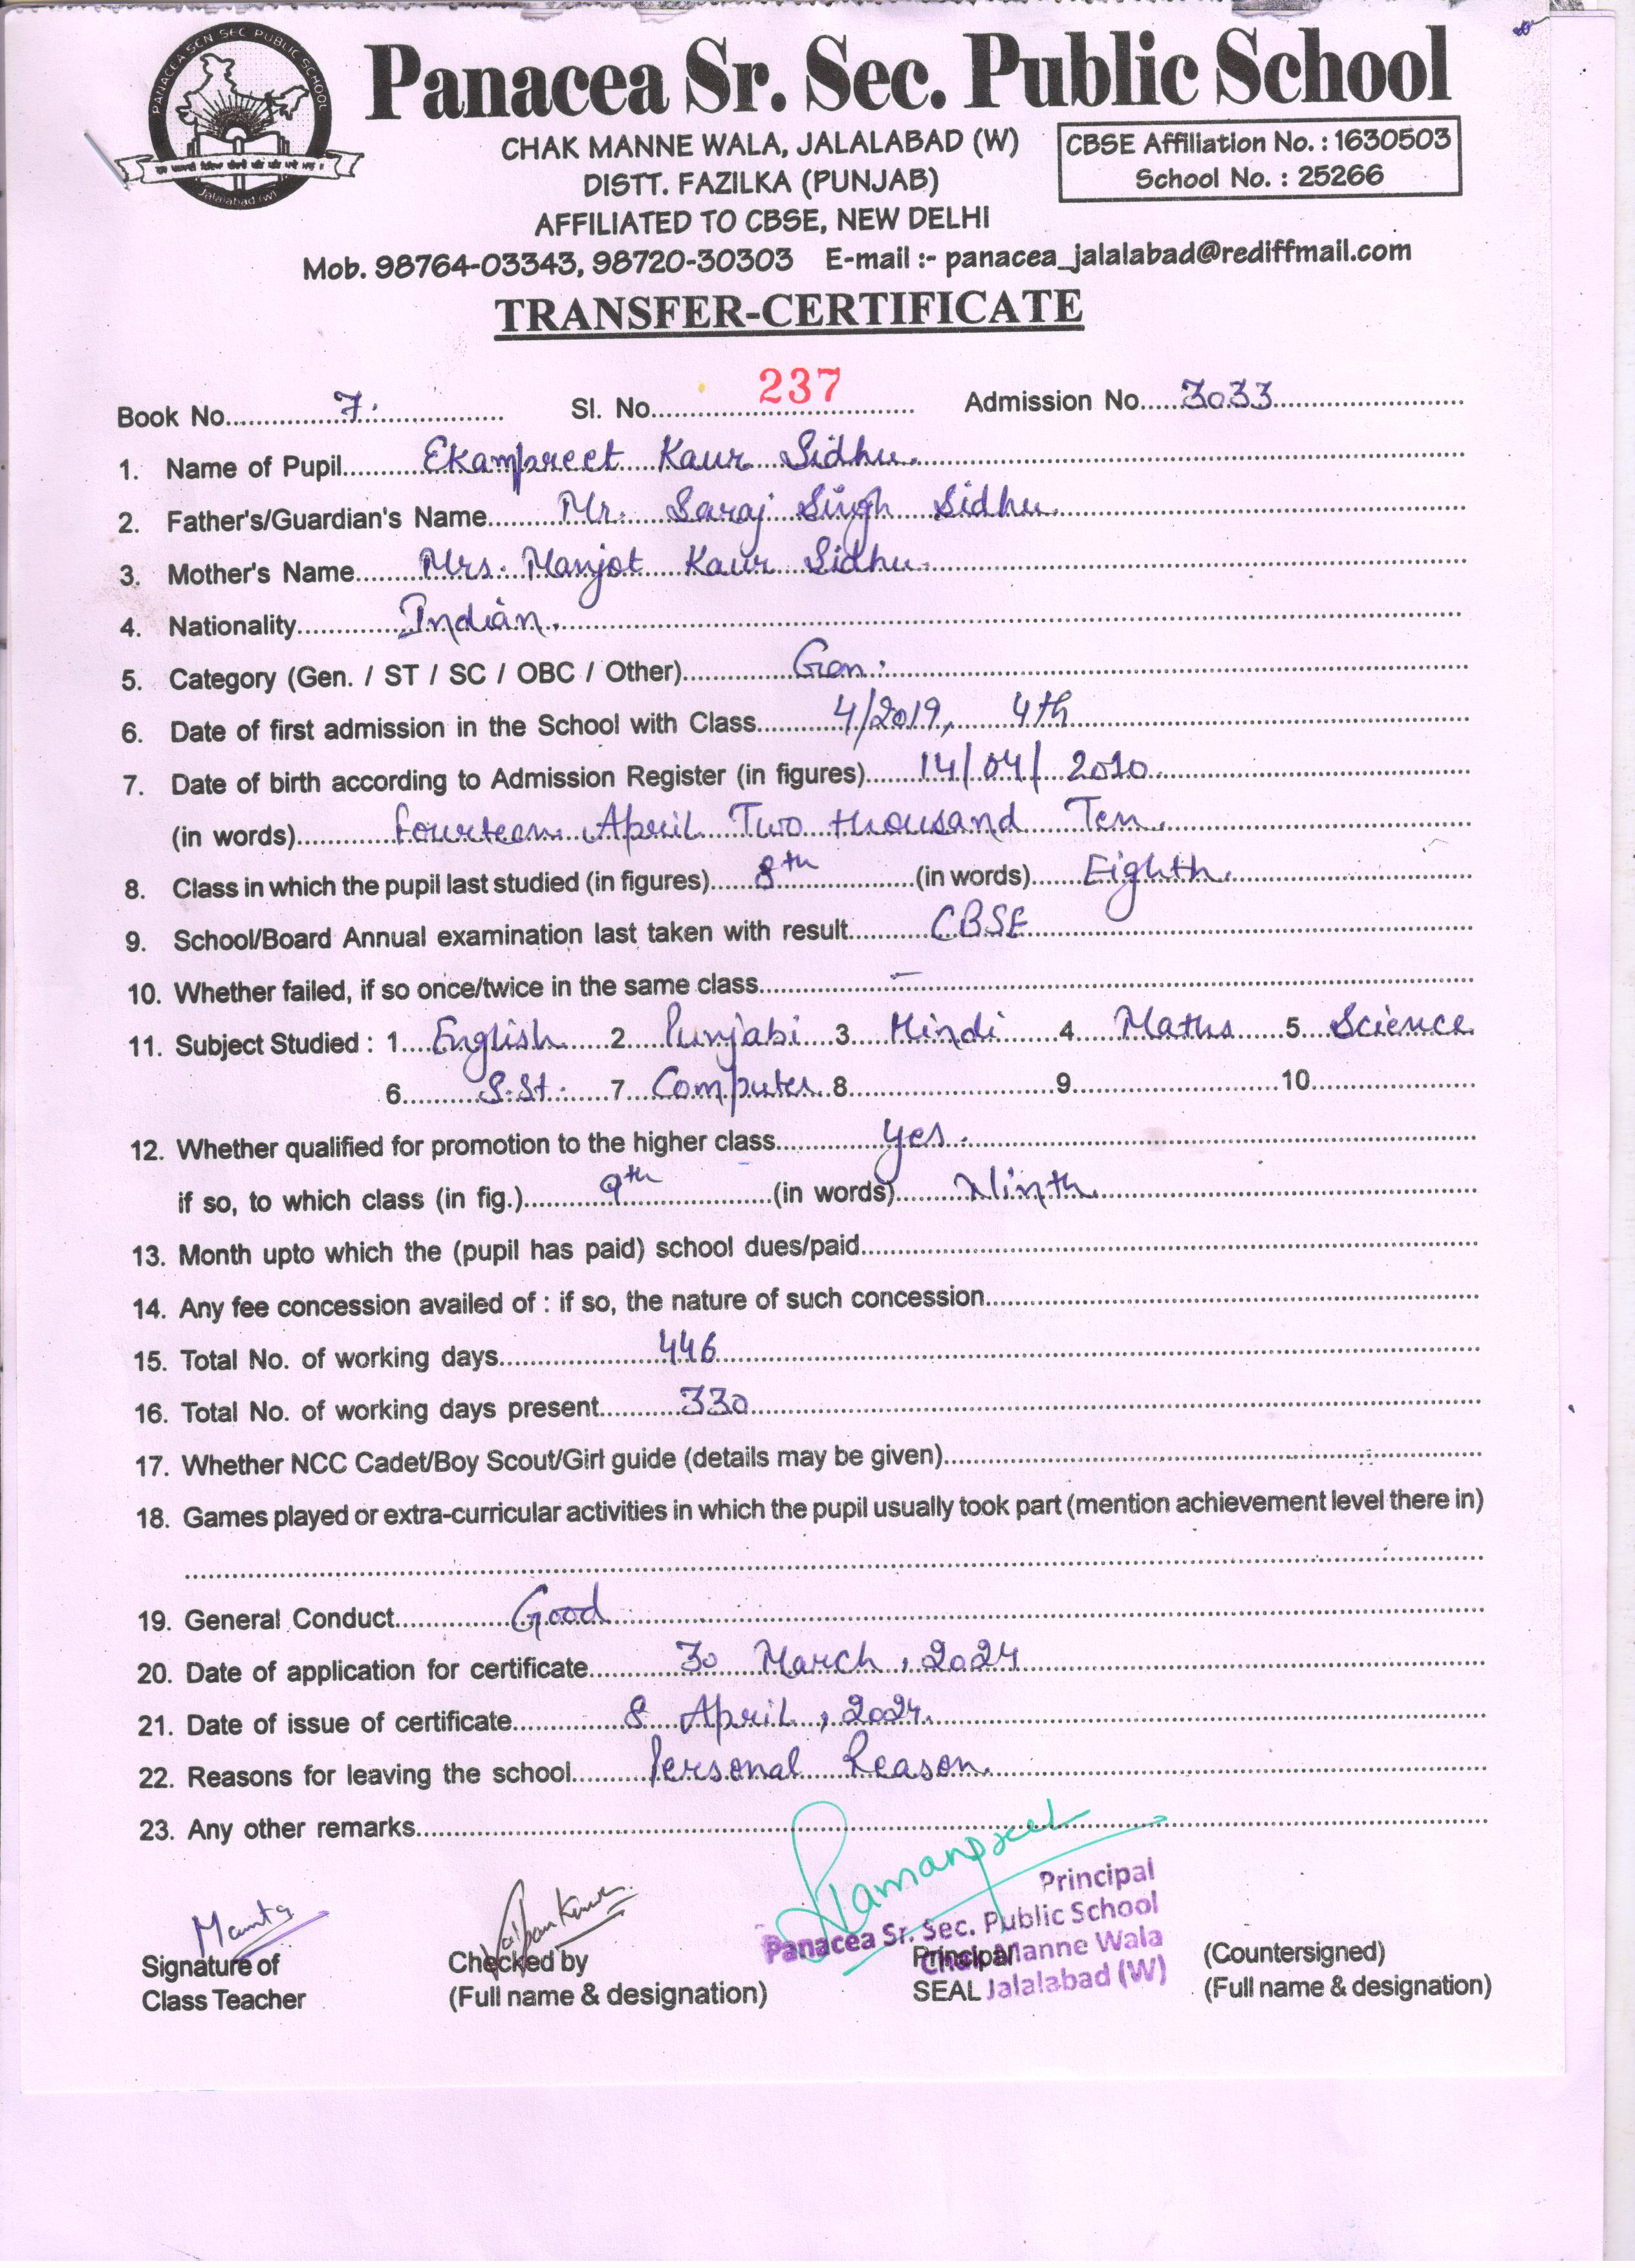 PANACEA SEN SEC PUBLIC SCHOOL
Jalalabad (W)
Panacea Sr. Sec. Public School
CHAK MANNE WALA, JALALABAD (W)
DISTT. FAZILKA (PUNJAB)
AFFILIATED TO CBSE, NEW DELHI
CBSE Affiliation No. : 1630503
School No. : 25266
Mob. 98764-03343, 98720-30303 E-mail :- panacea_jalalabad@rediffmail.com
TRANSFER-CERTIFICATE
Book No. 7. Sl. No. 237 Admission No. 3033
1. Name of Pupil Ekampreet Kaur Sidhu.
2. Father's/Guardian's Name Mr. Saraj Singh Sidhu.
3. Mother's Name Mrs. Manjot Kaur Sidhu.
4. Nationality Indian.
5. Category (Gen. / ST / SC / OBC / Other) Gen.
6. Date of first admission in the School with Class 4/2019, 4th
7. Date of birth according to Admission Register (in figures) 14/04/2010
(in words) Fourteen April Two thousand Ten.
8. Class in which the pupil last studied (in figures) 8th (in words) Eighth.
9. School/Board Annual examination last taken with result CBSE
10. Whether failed, if so once/twice in the same class —
11. Subject Studied : 1 English 2 Punjabi 3 Hindi 4 Maths 5. Science
6. S.St. 7 Computer 8 9 10
12. Whether qualified for promotion to the higher class yes.
if so, to which class (in fig.) 9th (in words) Ninth.
13. Month upto which the (pupil has paid) school dues/paid
14. Any fee concession availed of : if so, the nature of such concession
15. Total No. of working days 446
16. Total No. of working days present 330
17. Whether NCC Cadet/Boy Scout/Girl guide (details may be given)
18. Games played or extra-curricular activities in which the pupil usually took part (mention achievement level there in)
19. General Conduct Good
20. Date of application for certificate 30 March, 2024
21. Date of issue of certificate 8 April, 2024.
22. Reasons for leaving the school Personal Reason.
23. Any other remarks
Ramanpreet
Mamta
Principal
Panacea Sr. Sec. Public School
Chak Manne Wala
Jalalabad (W)
Signature of Checked by Principal (Countersigned)
Class Teacher (Full name & designation) SEAL (Full name & designation)